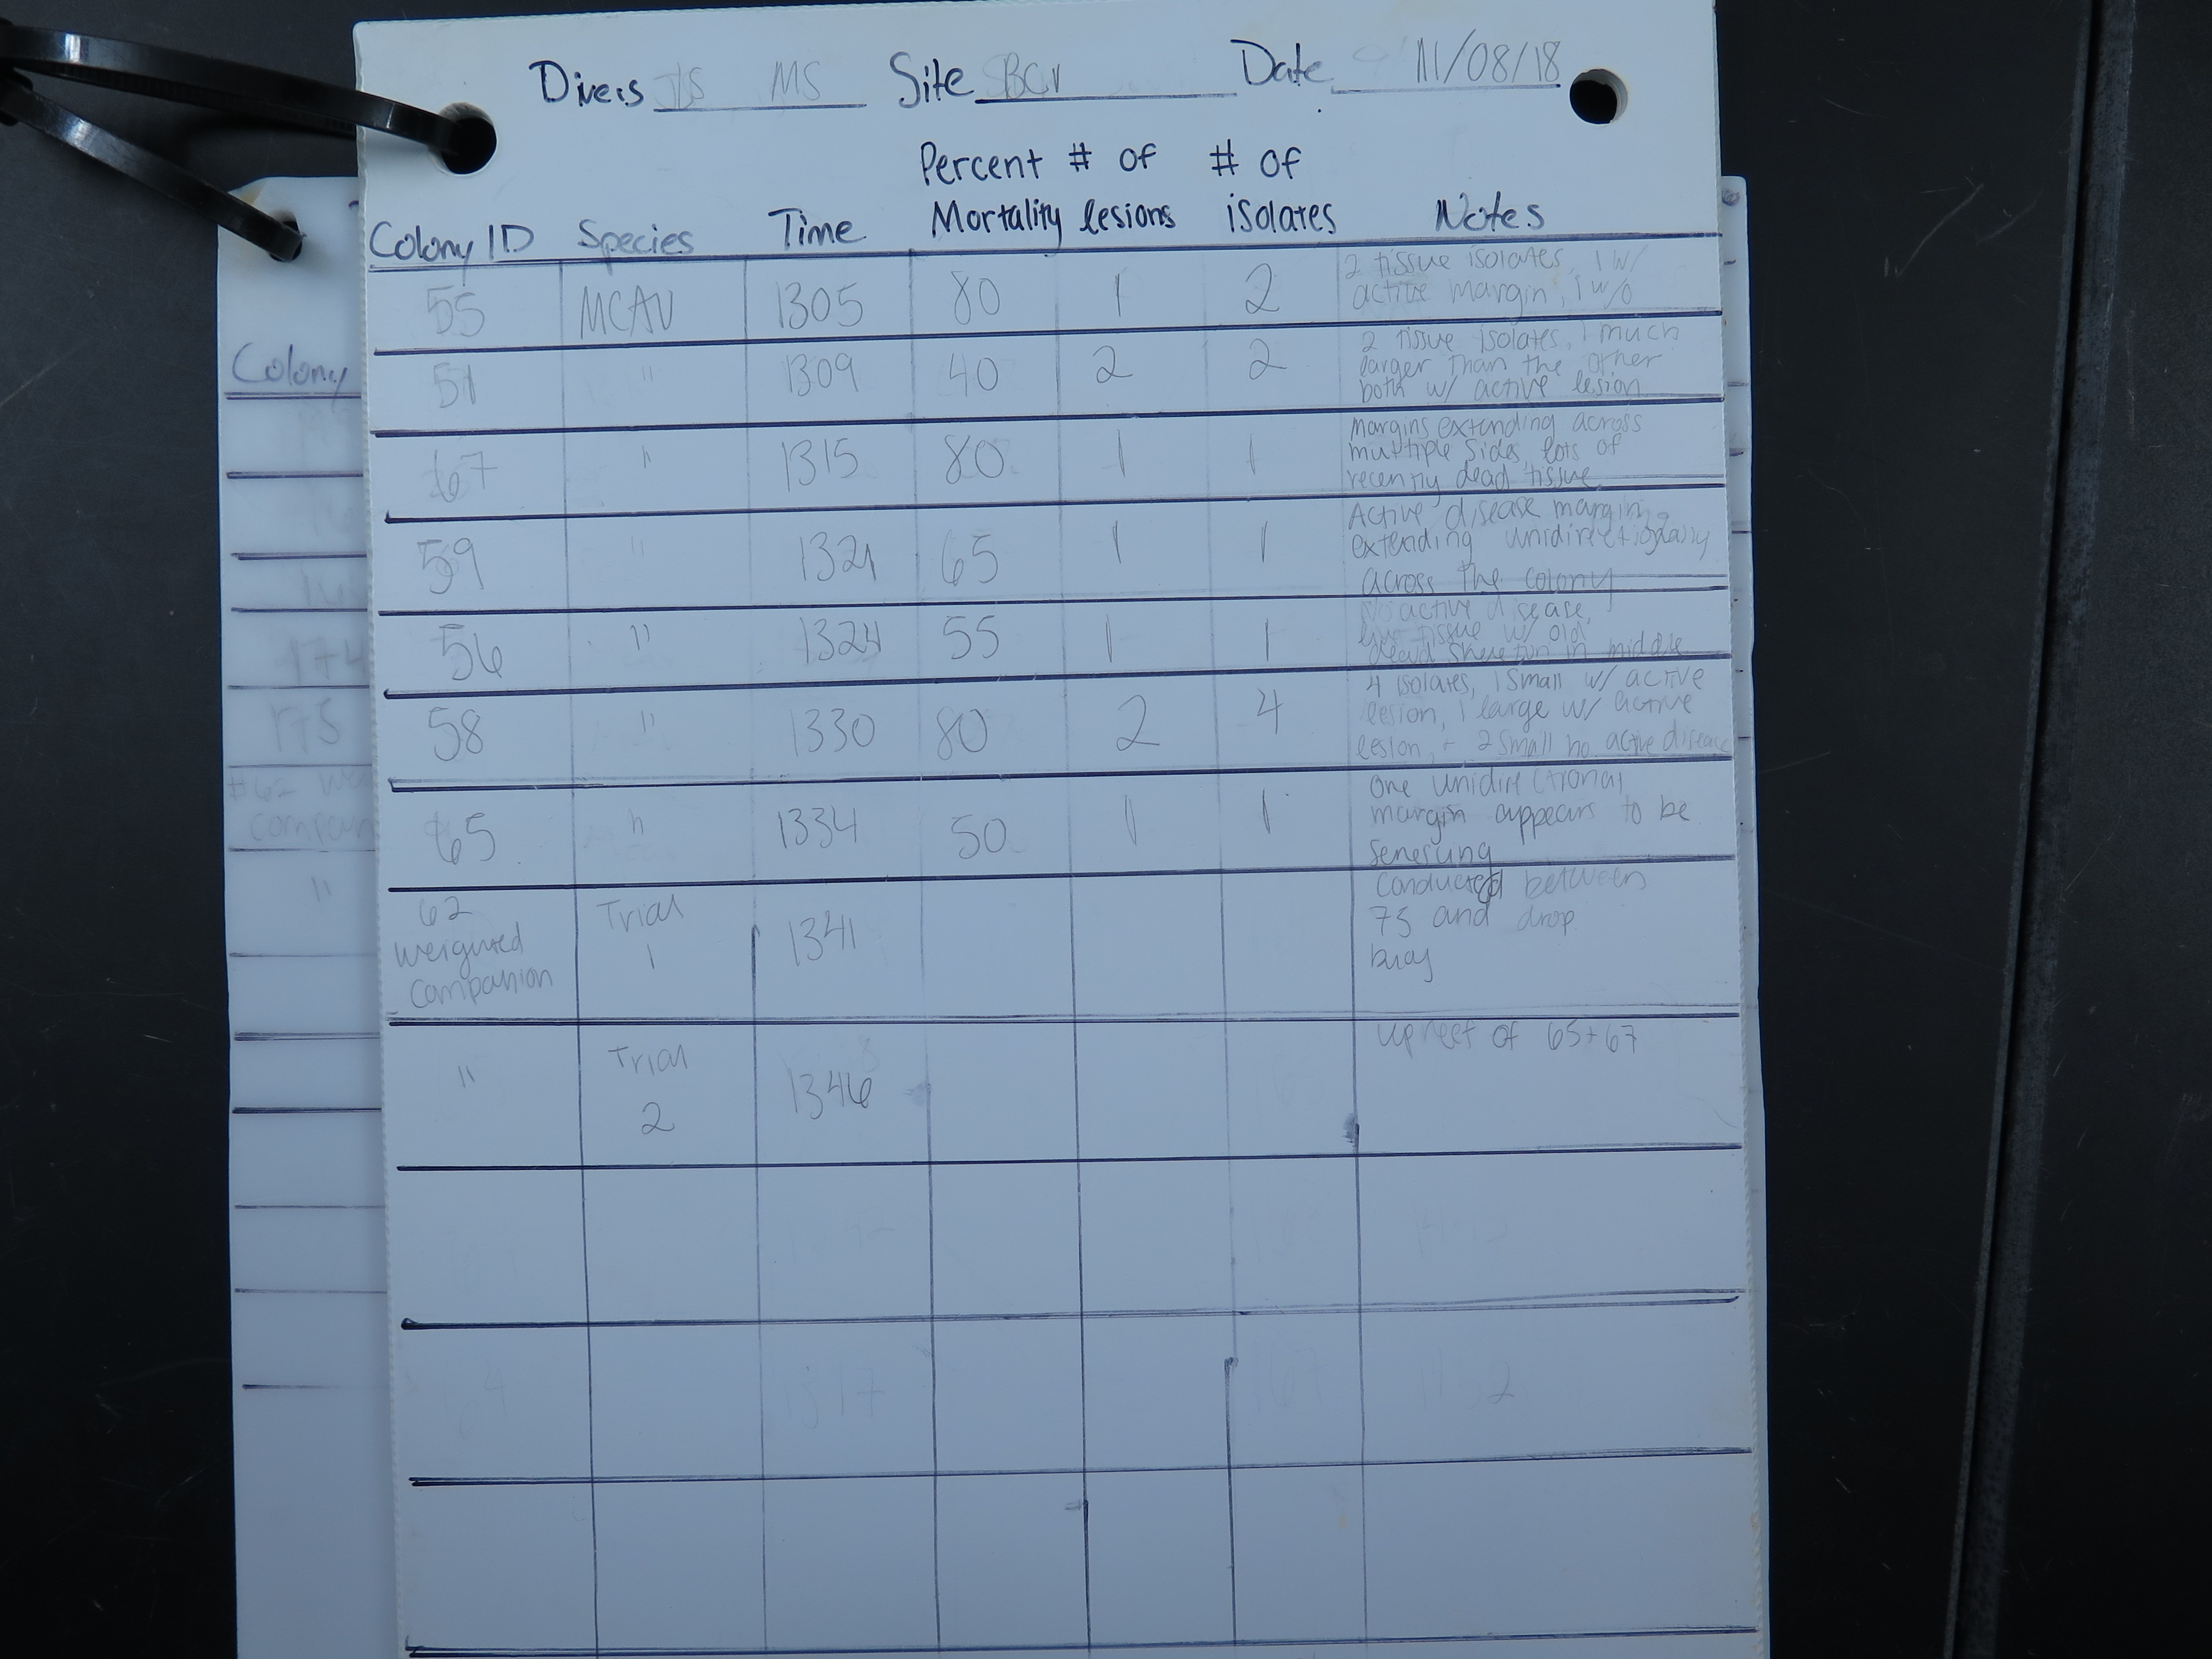 Divers JS MS Site BCA Date 11/08/18
Percent # of # of
Colony ID Species Time Mortality lesions isolates Notes
55 MCAV 1305 80 1 2 2 tissue isolates, 1 w/
active margin, 1 w/o
51 " 1309 40 2 2 2 tissue isolates, 1 much
larger than the other
both w/ active lesion
67 " 1315 80 1 1 margins extending across
multiple sides lots of
recently dead tissue
59 " 1321 65 1 1 Active disease margin
extending unidirectionally
across the colony
56 " 1324 55 1 1 active disease,
tissue w/ old
in middle
58 " 1330 80 2 4 4 isolates, 1 small w/ active
lesion, 1 large w/ active
lesion, + 2 small no active disease
65 " 1334 50 1 1 one unidirectional
margin appears to be
senescing
62 weighted companion Trial 1 1341 Conducted between
73 and drop
buoy
" Trial 2 1346 upreef of 65+67
Colony
#62
companion
"